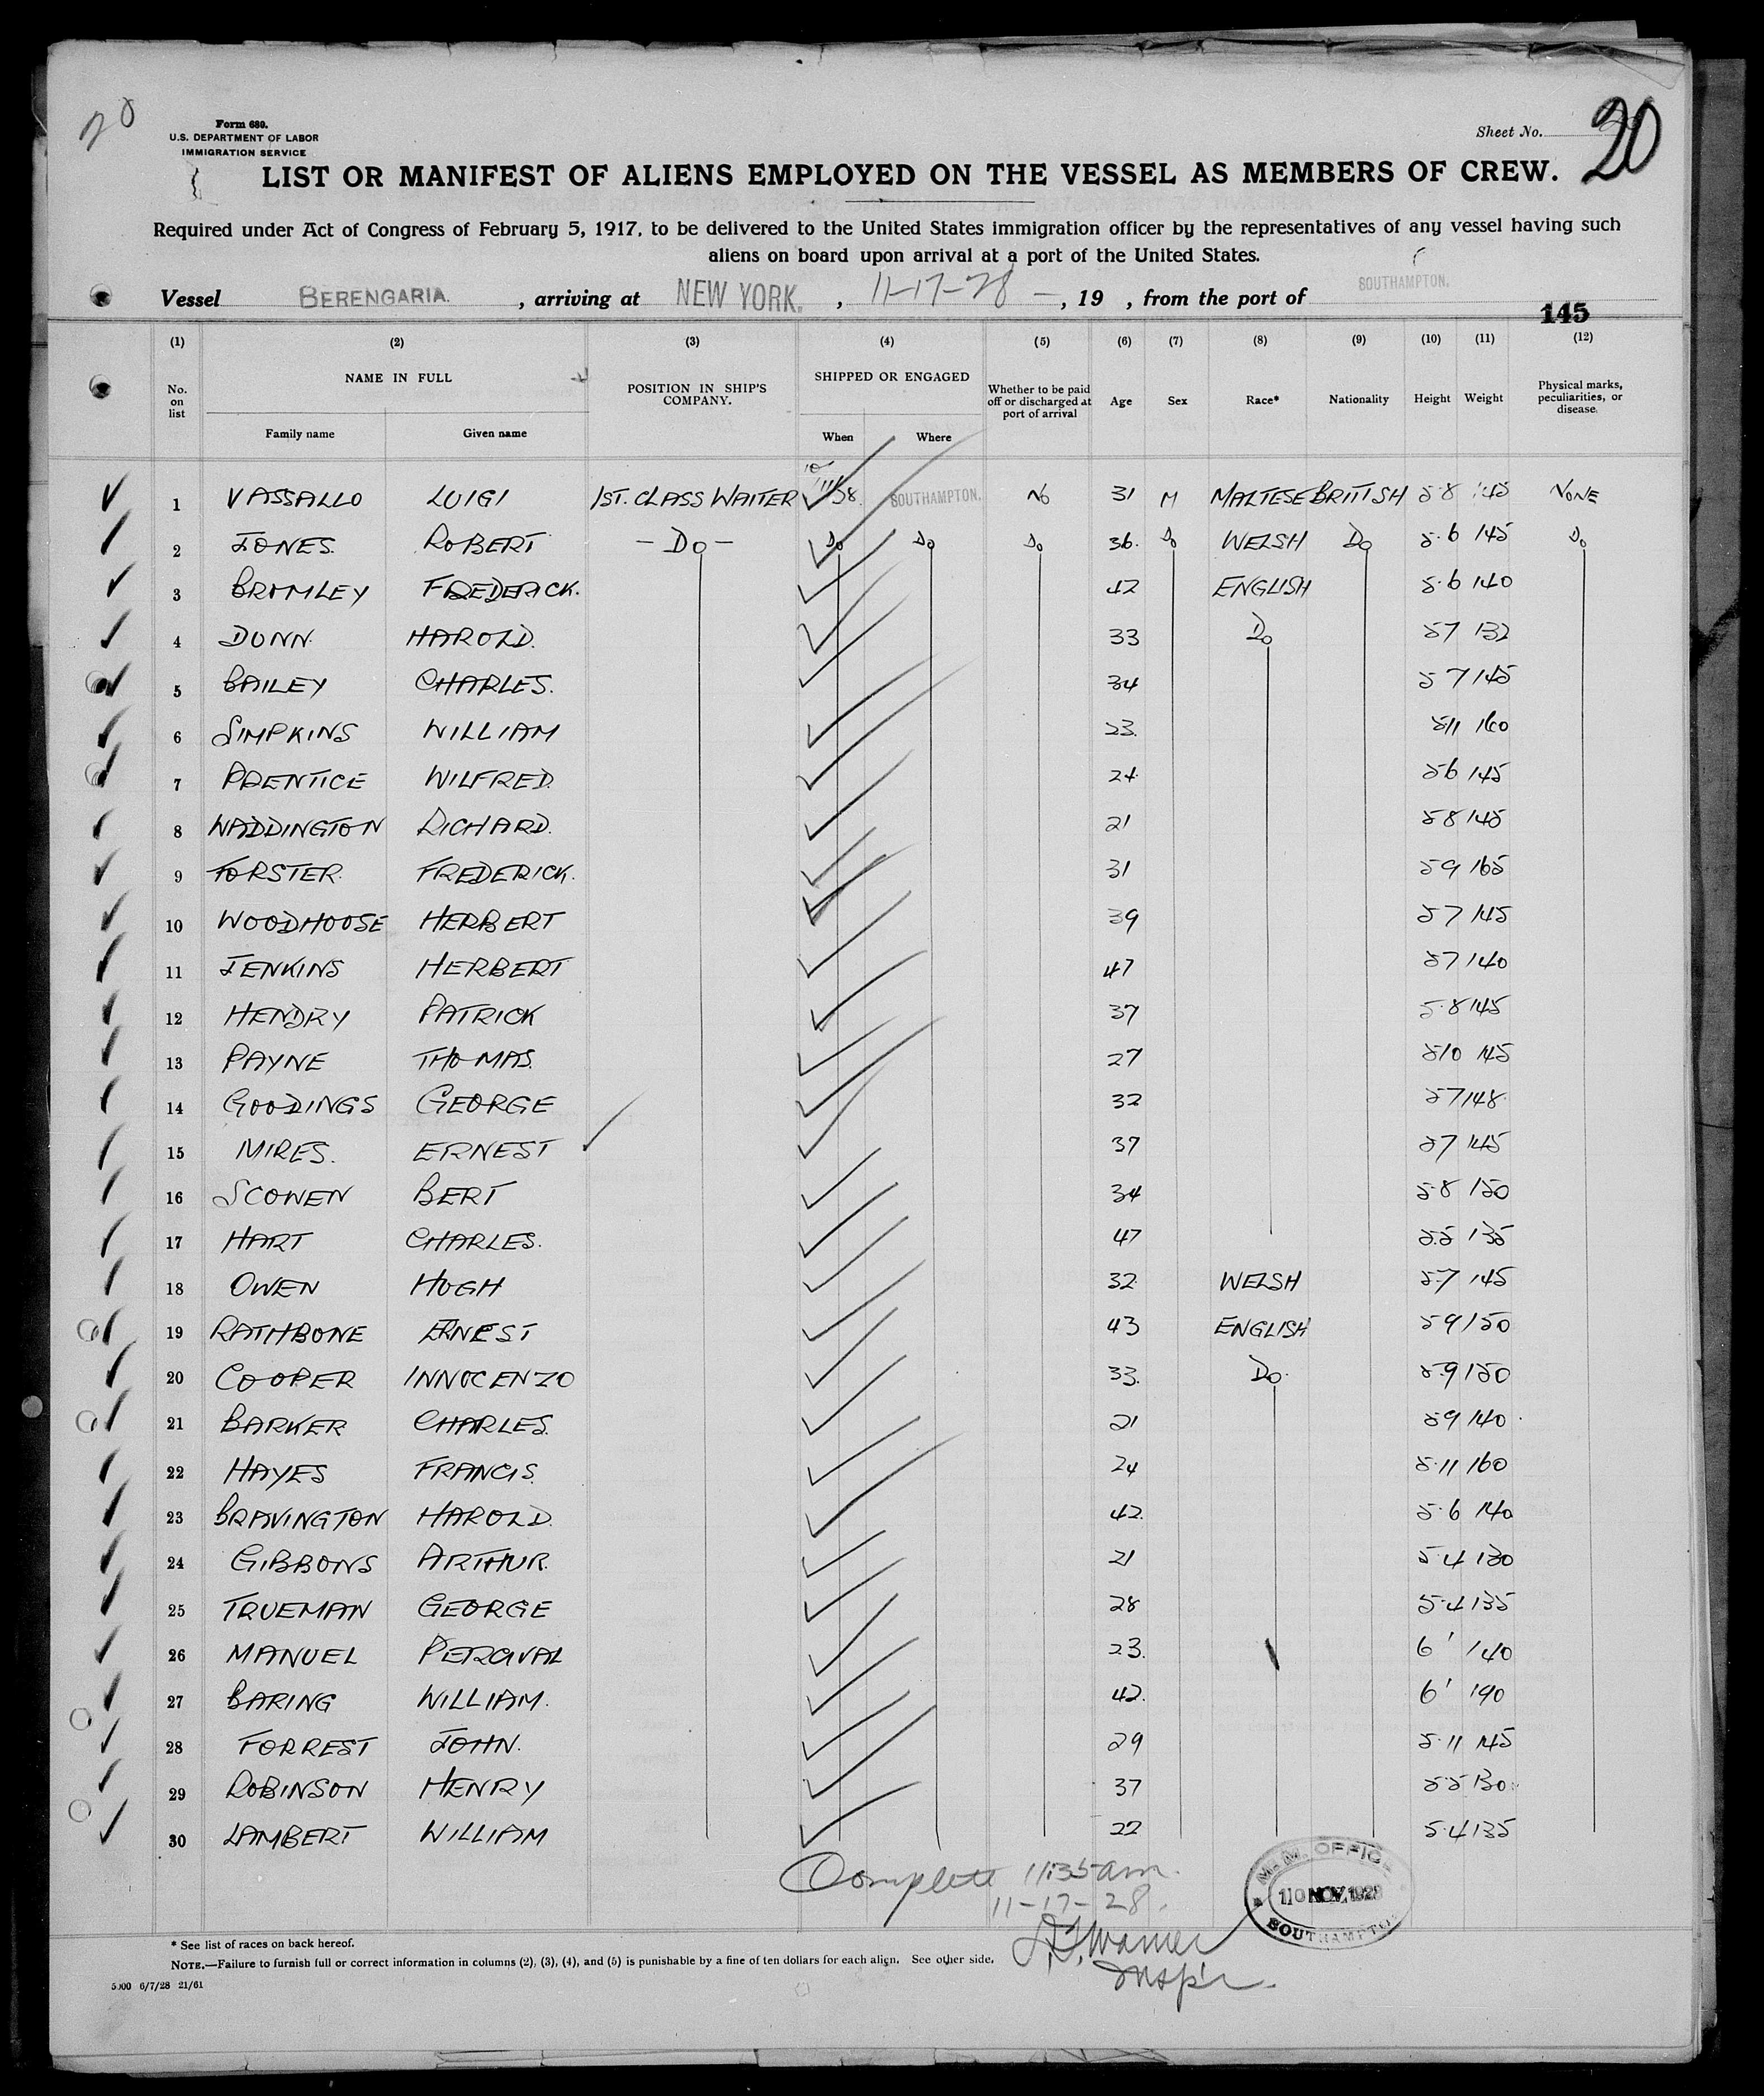 20
Form 689.
U.S. DEPARTMENT OF LABOR
IMMIGRATION SERVICE
Sheet No. 20
LIST OR MANIFEST OF ALIENS EMPLOYED ON THE VESSEL AS MEMBERS OF CREW.
Required under Act of Congress of February 5, 1917, to be delivered to the United States immigration officer by the representatives of any vessel having such
aliens on board upon arrival at a port of the United States.
Vessel BERENGARIA. , arriving at NEW YORK. , 11-17-28 , 19 , from the port of SOUTHAMPTON.
145
(1) (2) (3) (4) (5) (6) (7) (8) (9) (10) (11) (12)
No. on list NAME IN FULL POSITION IN SHIP'S COMPANY. SHIPPED OR ENGAGED Whether to be paid off or discharged at port of arrival Age Sex Race* Nationality Height Weight Physical marks, peculiarities, or disease.
Family name Given name When Where
1 VASSALLO LUIGI 1ST. CLASS WAITER 10/11/28. SOUTHAMPTON. No 31 M MALTESE BRITISH 5 8 145 NONE
2 JONES. ROBERT - Do - Do Do Do 36. Do WELSH Do 5.6 145 Do
3 BROMLEY FREDERICK. 42 ENGLISH 5.6 140
4 DUNN. HAROLD. 33 Do 57 132
5 BAILEY CHARLES. 34 5 7 145
6 SIMPKINS WILLIAM 23. 511 160
7 PRENTICE WILFRED. 24 56 145
8 WADDINGTON RICHARD. 21 58 145
9 FORSTER. FREDERICK. 31 59 165
10 WOODHOUSE HERBERT 39 57 145
11 JENKINS HERBERT 47 57 140
12 HENDRY PATRICK 37 5.8 145
13 PAYNE THOMAS. 27 510 145
14 GOODINGS GEORGE 32 57 148.
15 MIRES. ERNEST 37 57 145
16 SCOWEN BERT 34 5.8 150
17 HART CHARLES. 47 5.5 135
18 OWEN HUGH 32 WELSH 5.7 145
19 RATHBONE ERNEST 43 ENGLISH 59 150
20 COOPER INNOCENZO 33. Do. 5.9 150
21 BARKER CHARLES. 21 59 140
22 HAYES FRANCIS. 24 5.11 160
23 BRAVINGTON HAROLD. 42. 5.6 140
24 GIBBONS ARTHUR. 21 5.4 130
25 TRUEMAN GEORGE 28 5.4 135
26 MANUEL PERCIVAL 23. 6' 140
27 BARING WILLIAM. 42. 6' 190
28 FORREST JOHN. 29 5.11 145
29 ROBINSON HENRY 37 5.5 130
30 LAMBERT WILLIAM 22 5.4 135
Complete 11:35 am.
11-17-28.
Warner
Insp'r.
M.M. OFFICE
10 NOV. 1928
SOUTHAMPTON
* See list of races on back hereof.
NOTE.—Failure to furnish full or correct information in columns (2), (3), (4), and (5) is punishable by a fine of ten dollars for each alien. See other side.
5000 6/7/28 21/61